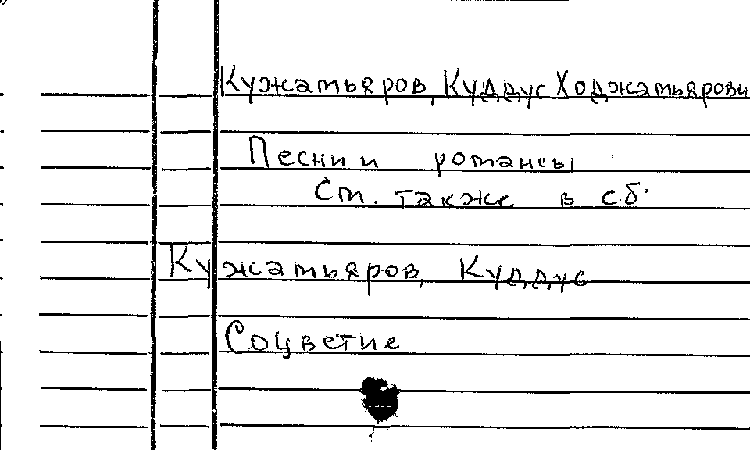 Кужатьяров, Куддус Ходжатьярови
Песни и романсы
См. также в сб.
Кужатьяров, Куддус
Соцветие